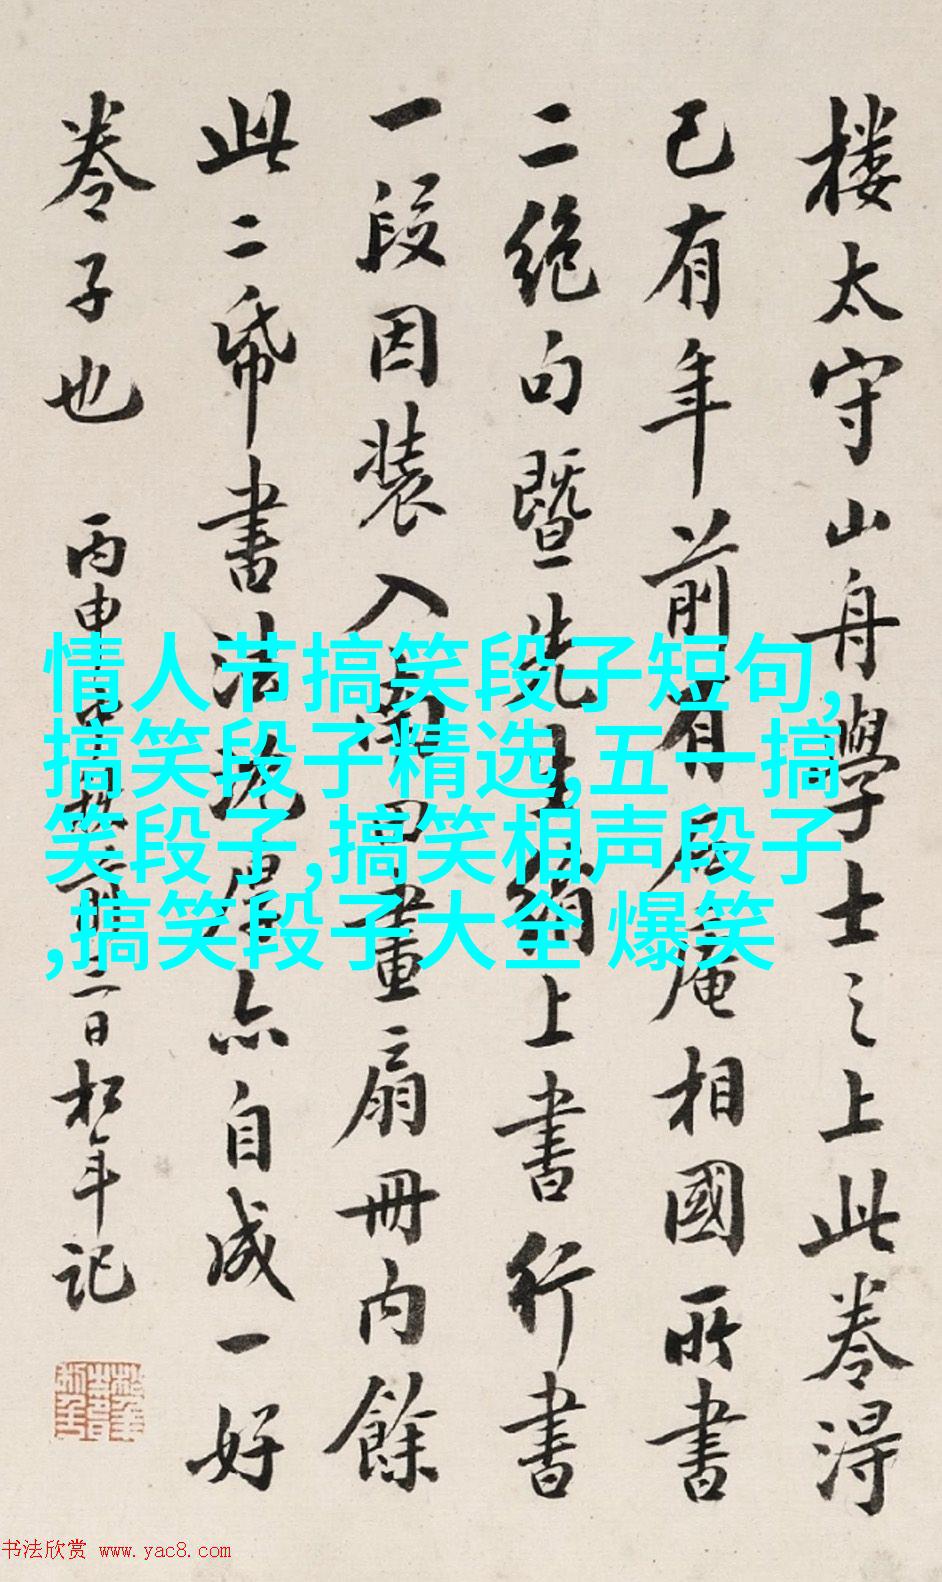 楼太守山舟學士之上此卷淂
已有年前有居庵相國所書
二絕句暨先生絹上書行書
一段因装入畫扇冊内餘
此二帋書法亦自成一好
卷子也
丙申前二日松年記
情人节搞笑段子短句,
搞笑段子精选,五一搞
笑段子,搞笑相声段子
,搞笑段子大全 爆笑
书法欣赏 www.yac8.com